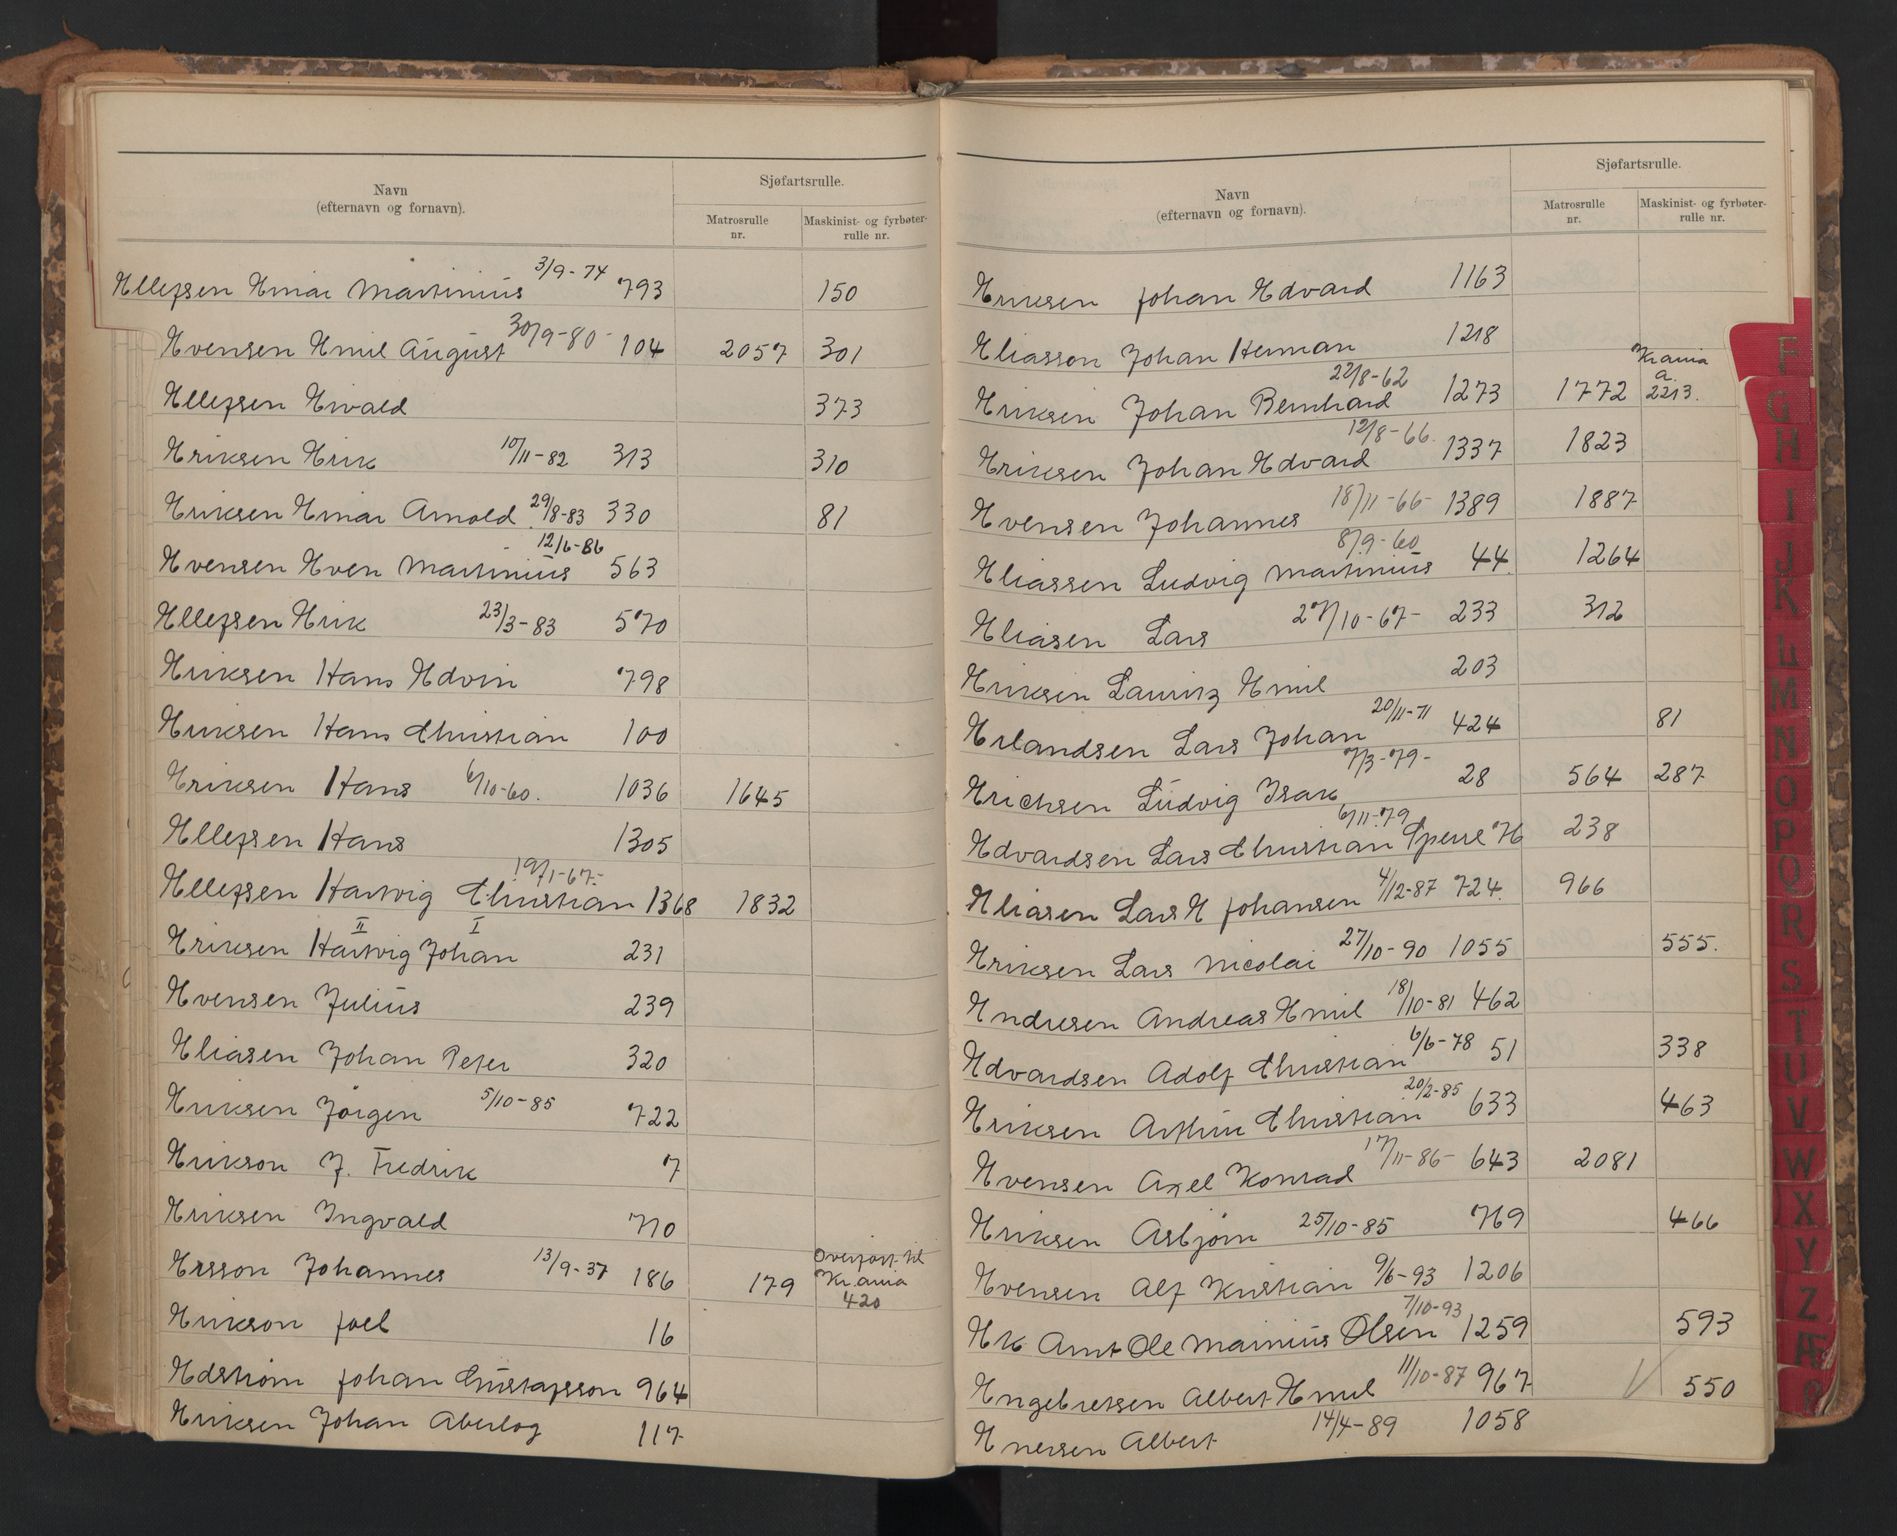 Navn
(efternavn og fornavn).
Sjøfartsrulle.
Matrosrulle
nr.
Maskinist- og fyrbøter-
rulle nr.
Ellefsen Einar Martinius 3/9-74 793 150
Evensen Emil August 30/9-80- 104 2057 301
Ellefsen Eivald 373
Eriksen Erik 10/11-82 313 310
Eriksen Einar Arnold 29/8-83 330 81
Evensen Even Martinius 12/6-86 563
Ellefsen Erik 23/3-83 570
Eriksen Hans Edvin 798
Eriksen Hans Christian 100
Eriksen Hans 6/10-60. 1036 1645
Ellefsen Hans 1305
Ellefsen Hartvig Christian 19/1-67- 1368 1832
II I
Eriksen Hartvig Johan 231
Evensen Julius 239
Eliasen Johan Peter 320
Eriksen Jörgen 5/10-85 722
Erikson J. Fredrik 7
Eriksen Ingvald 710
Ersson Johannes 13/9-37 186 179 Overført til
Kr.ania
420
Erikson Joel 16
Edström Johan Gustafsson 964
Eriksen Johan Aberlog 117
Navn
(efternavn og fornavn).
Sjøfartsrulle.
Matrosrulle
nr.
Maskinist- og fyrbøter-
rulle nr.
Eriksen Johan Edvard 1163
Eliasson Johan Herman 1218
Eriksen Johan Bernhard 22/8-62 1273 1772 Kr.ania
a.
2213.
Eriksen Johan Edvard 12/8-66. 1337 1823
Evensen Johannes 18/11-66- 1389 1887
Eliassen Ludvig Martinius 8/9-60 44 1264
Eliasen Lars 27/10-67- 233 312
Eriksen Lauritz Emil 203
Erlandsen Lars Johan 20/11-71 424 81
Erichsen Ludvig Isak 7/3-79- 28 564 287
Edvardsen Lars Christian Sperre 6/11-79 76 238
Eliasen Lars E Johansen 4/12-87 724. 966
Eriksen Lars Nicolai 27/10-90 1055 555.
Endresen Andreas Emil 18/10-81 462
Edvardsen Adolf Christian 6/6-78 51 338
Eriksen Arthur Christian 20/2-85 633 463
Evensen Axel Konrad 17/11-86- 643 2081
Eriksen Asbjørn 25/10-85 769 466
Evensen Alf Kristian 9/6-93 1206
Ek Arnt Ole Marinius Olsen 7/10-93 1259 593
Engebretsen Albert Emil 11/10-87 967 550
Enersen Albert 14/4-89 1058
F
G
H
I
J
K
L
M
N
O
P
Q
R
S
T
U
V
W
X
Y
Z
Æ
Ø